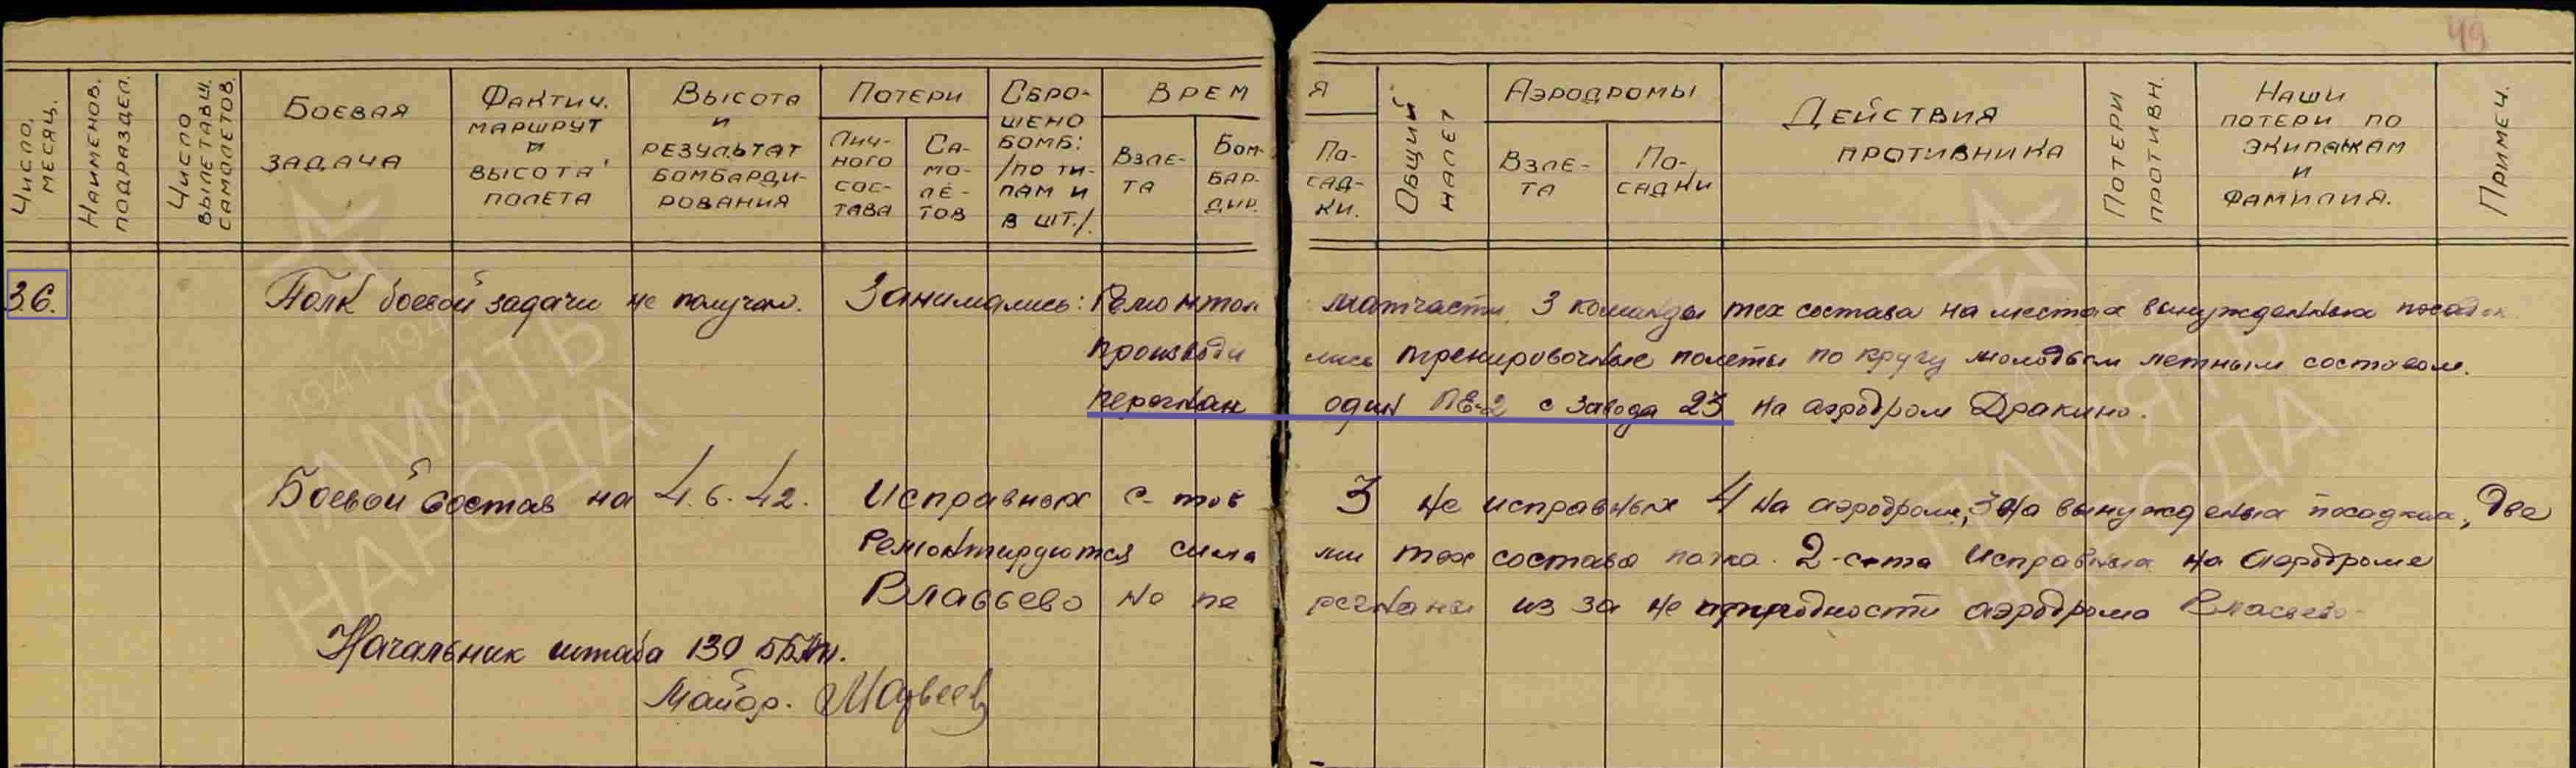 49
Число, месяц.
Наименов. подраздел.
Число вылетавш. самолетов.
Боевая задача
Фактич. маршрут и высота полета
Высота и результат бомбардирования
Потери
Личного состава
Самолетов
Сброшено бомб: /по типам и в шт./.
Время
Взлета
Бомбардир.
Посадки.
Общий налет
Аэродромы
Взлета
Посадки
Действия противника
Потери противн.
Наши потери по экипажам и фамилия.
Примеч.
3.6. Полк боевой задачи не получал. Занимались: Ремонтом матчасти 3 команды тех состава на местах вынужденных посадок
производились тренировочные полеты по кругу молодым летным составом.
перегнан один ПЕ-2 с завода 23 на аэродром Дракино.
Боевой состав на 4.6.42. Исправных с-тов 3 не исправных 4 на аэродроме, 3 на вынужденых посадках,
Ремонтируются силами тех состава полка. 2-с-та исправных на аэродроме
Власьево не перегнаны из за не пригодности аэродрома Власьево
Начальник штаба 130 ББАП.
Майор. Матвеев
ПАМЯТЬ НАРОДА
1941-1945
ПАМЯТЬ НАРОДА